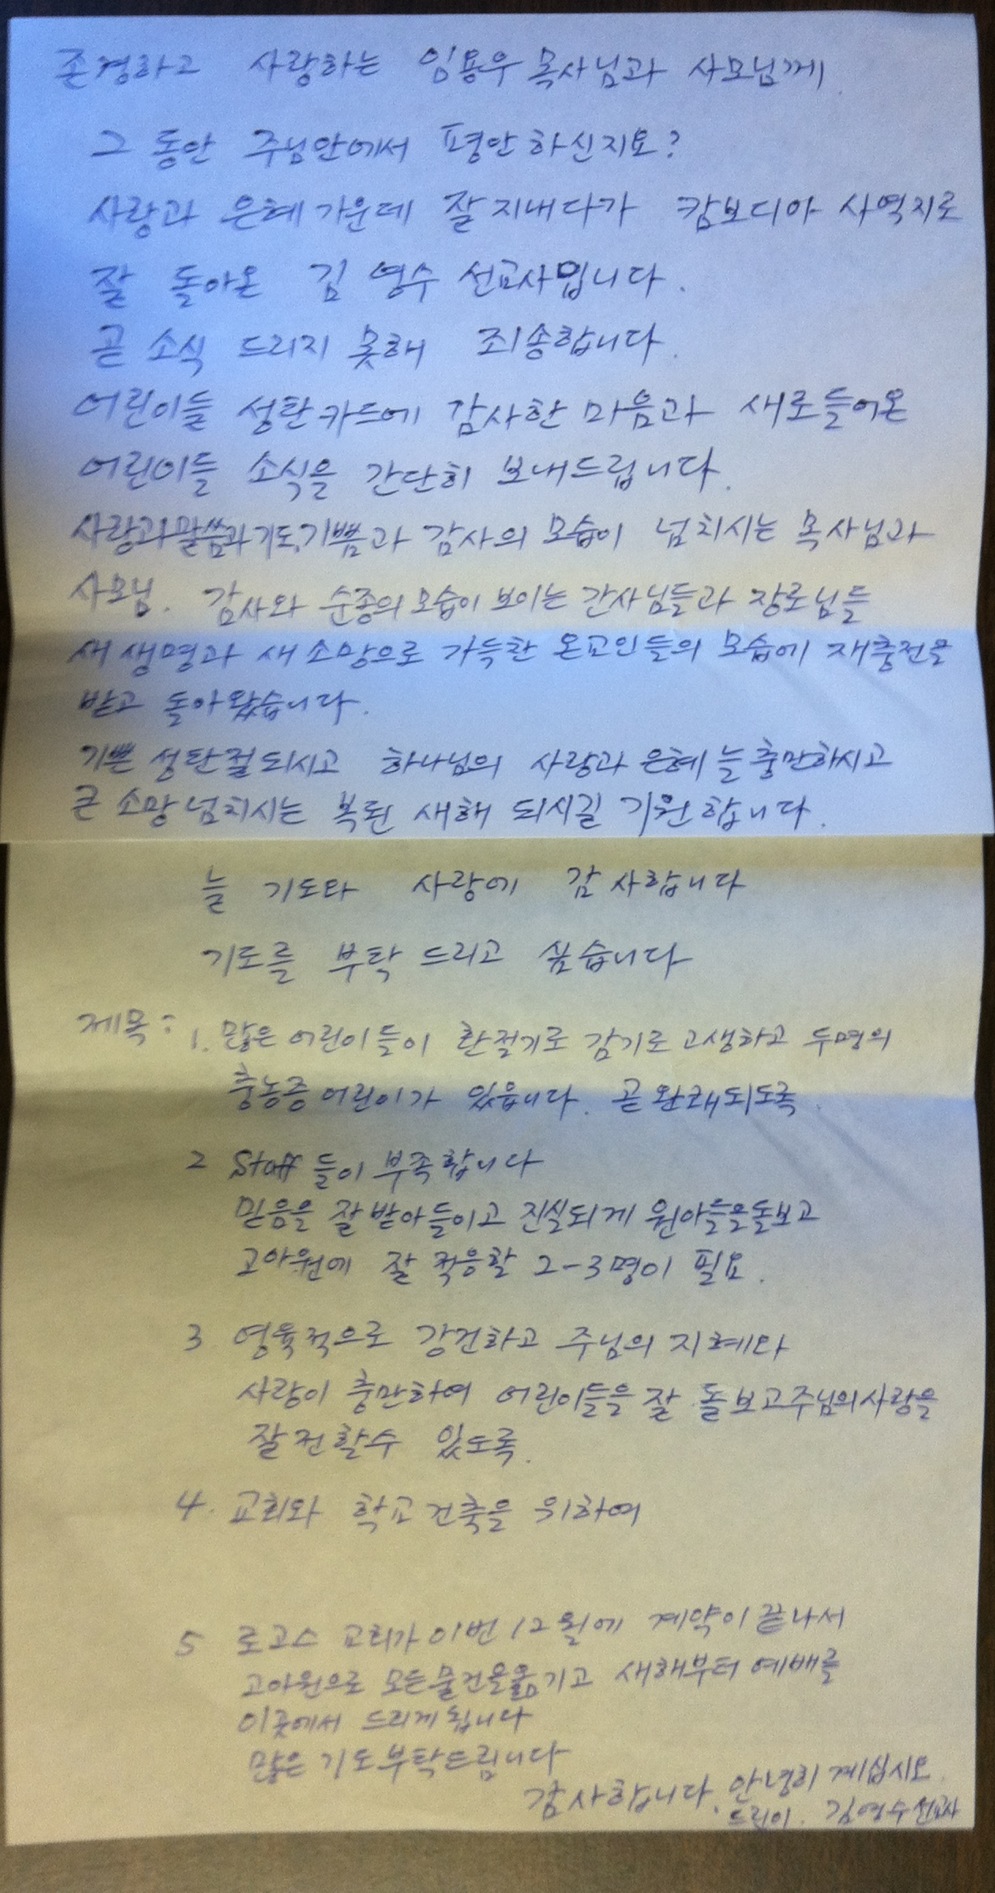 존경하고 사랑하는 임용우 목사님과 사모님께
그 동안 주님안에서 평안 하신지요?
사랑과 은혜 가운데 잘 지내다가 캄보디아 사역지로
잘 돌아온 김 영수 선교사입니다.
곧 소식 드리지 못해 죄송합니다.
어린이들 성탄카드에 감사한 마음과 새로들어온
어린이들 소식을 간단히 보내드립니다.
사랑과 말씀과 기도, 기쁨과 감사의 모습이 넘치시는 목사님과
사모님. 감사와 순종의 모습이 보이는 간사님들과 장로님들
새 생명과 새 소망으로 가득한 온교인들의 모습에 재충전을
받고 돌아왔습니다.
기쁜 성탄절되시고 하나님의 사랑과 은혜 늘 충만하시고
큰 소망 넘치시는 복된 새해 되시길 기원합니다.
늘 기도와 사랑에 감사합니다
기도를 부탁 드리고 싶습니다
제목: 1. 많은 어린이들이 환절기로 감기로 고생하고 두명의
충농증 어린이가 있읍니다. 곧 완쾌되도록
2 Staff 들이 부족합니다
믿음을 잘 받아들이고 진실되게 원아들을돌보고
고아원에 잘 적응할 2-3명이 필요.
3 영육적으로 강건하고 주님의 지혜와
사랑이 충만하여 어린이들을 잘 돌보고주님의사랑을
잘전할수 있도록.
4. 교회와 학교건축을 위하여
5 로고스 교회가 이번 12월에 계약이 끝나서
고아원으로 모든물건을옮기고 새해부터 예배를
이곳에서 드리게됩니다
많은 기도부탁드립니다
감사합니다. 안녕히 계십시요.
드린이. 김영수선교사